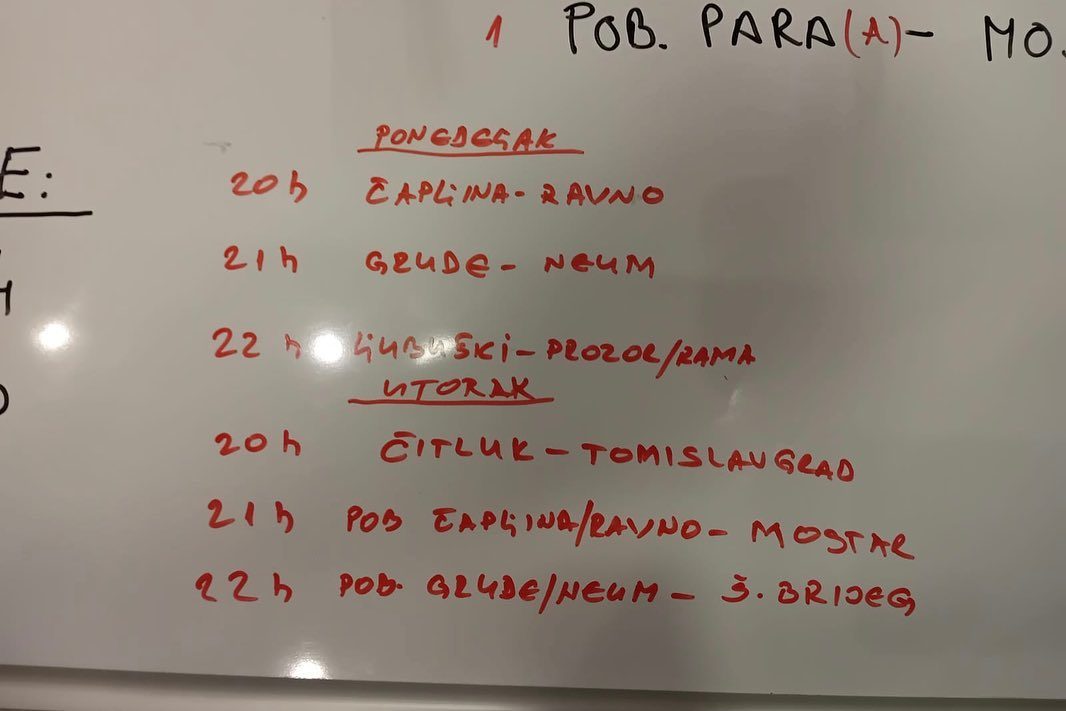 1 POB. PARA(A)- MO.
E:
PONEDELJAK
20h ČAPLJINA- RAVNO
21h GRUDE- NEUM
22h LJUBUŠKI- PROZOR/RAMA
UTORAK
20h ČITLUK- TOMISLAVGRAD
21h POB ČAPLJINA/RAVNO- MOSTAR
22h POB. GRUDE/NEUM- Š. BRIJEG